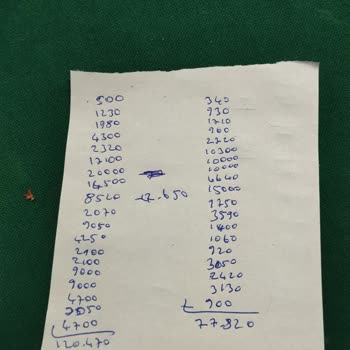 500
1230
1980
4300
2320
17100
20000
14500
8520 -17.650
2070
9050
4250
2100
2100
9000
9000
4700
3050
4700
120.470
340
930
1710
900
2720
10300
10000
10000
4640
15000
1750
3590
1400
1060
920
3050
2420
3130
900
77.820